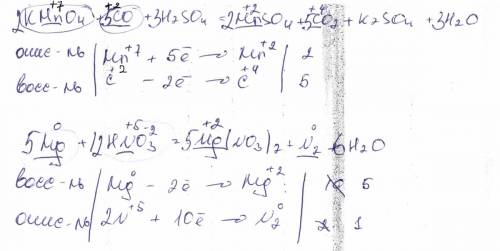 +7 +2 +2 +4
2KMnO4 + 5CO + 3H2SO4 = 2MnSO4 + 5CO2 + K2SO4 + 3H2O
окис-ль | Mn+7 + 5ē → Mn+2 | 2
восс-ль | C+2 − 2ē → C+4 | 5
0 +5 -2 +2 0
5Mg + 12HNO3 = 5Mg(NO3)2 + N2 + 6H2O
восс-ль | Mg0 − 2ē → Mg+2 | 5
окис-ль | 2N+5 + 10ē → N20 | 1